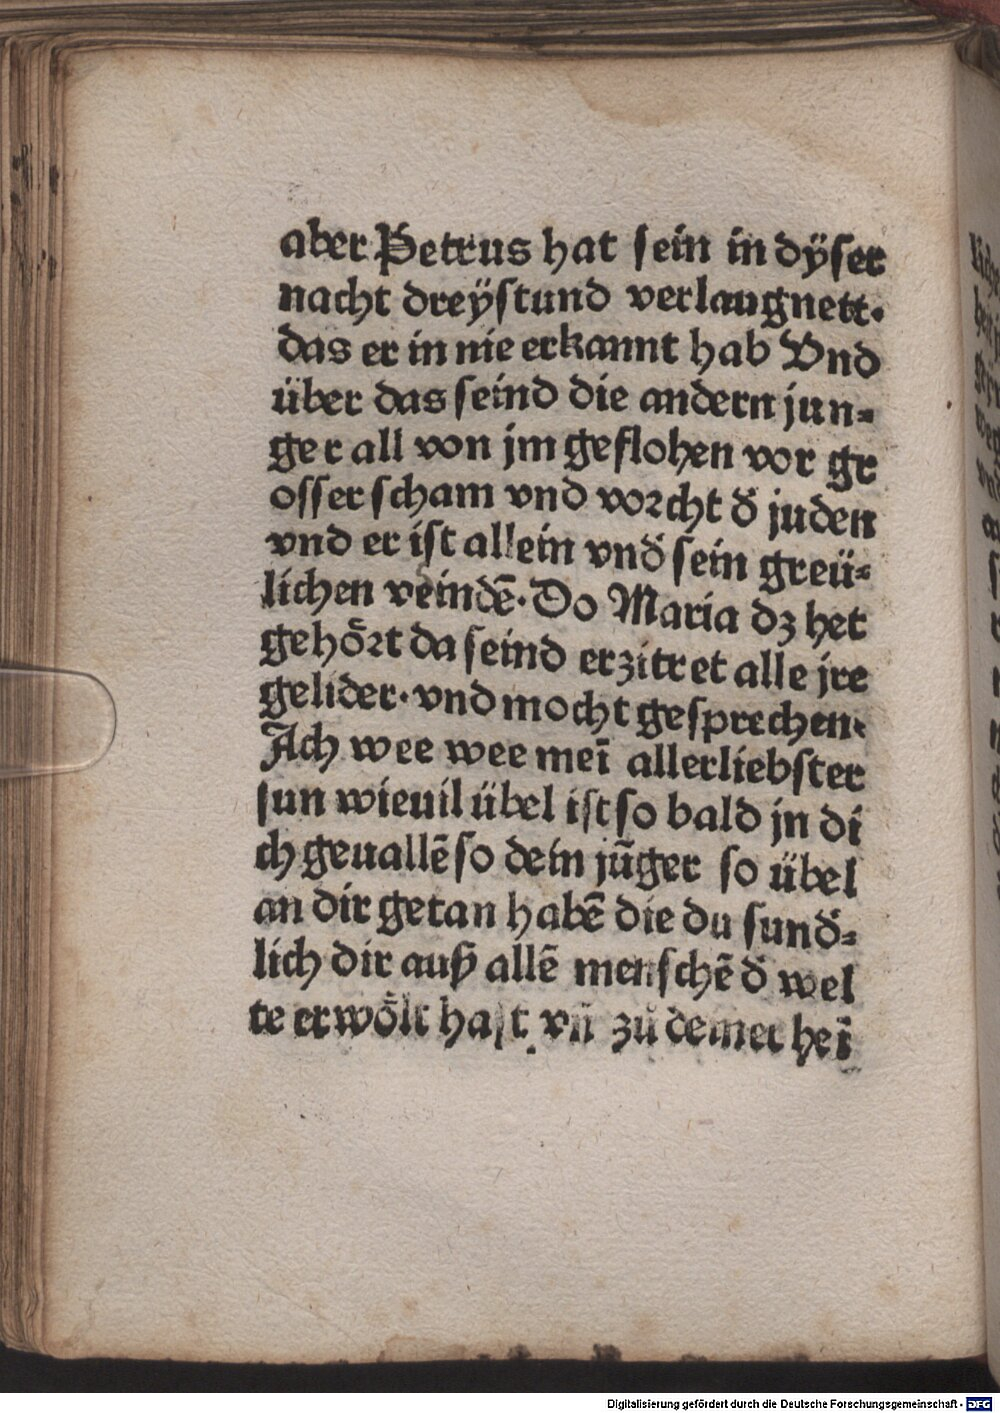 aber Petrus hat sein in dÿser
nacht dreÿstund verlaugnett·
das er in nie erkannt hab Vnd
über das seind die andern jun⸗
ger all von jm geflohen vor gr
osser scham vnd vorcht d̄ juden
vnd er ist allein vnd̄ sein greü⸗
lichen veindē· Do Maria dz het
gehört da seind erzitret alle jre
gelider· vnd mocht gesprechen·
Ach wee wee mei̅ allerliebster
sun wieuil übel ist so bald jn di
ch geuallē so dein ju̅ger so übel
an dir getan habē die du sund̄⸗
lich dir auß allē menschē d̄ wel
te erwölt hast vn̅ zů deiner hei̅
Digitalisierung gefördert durch die Deutsche Forschungsgemeinschaft - DFG